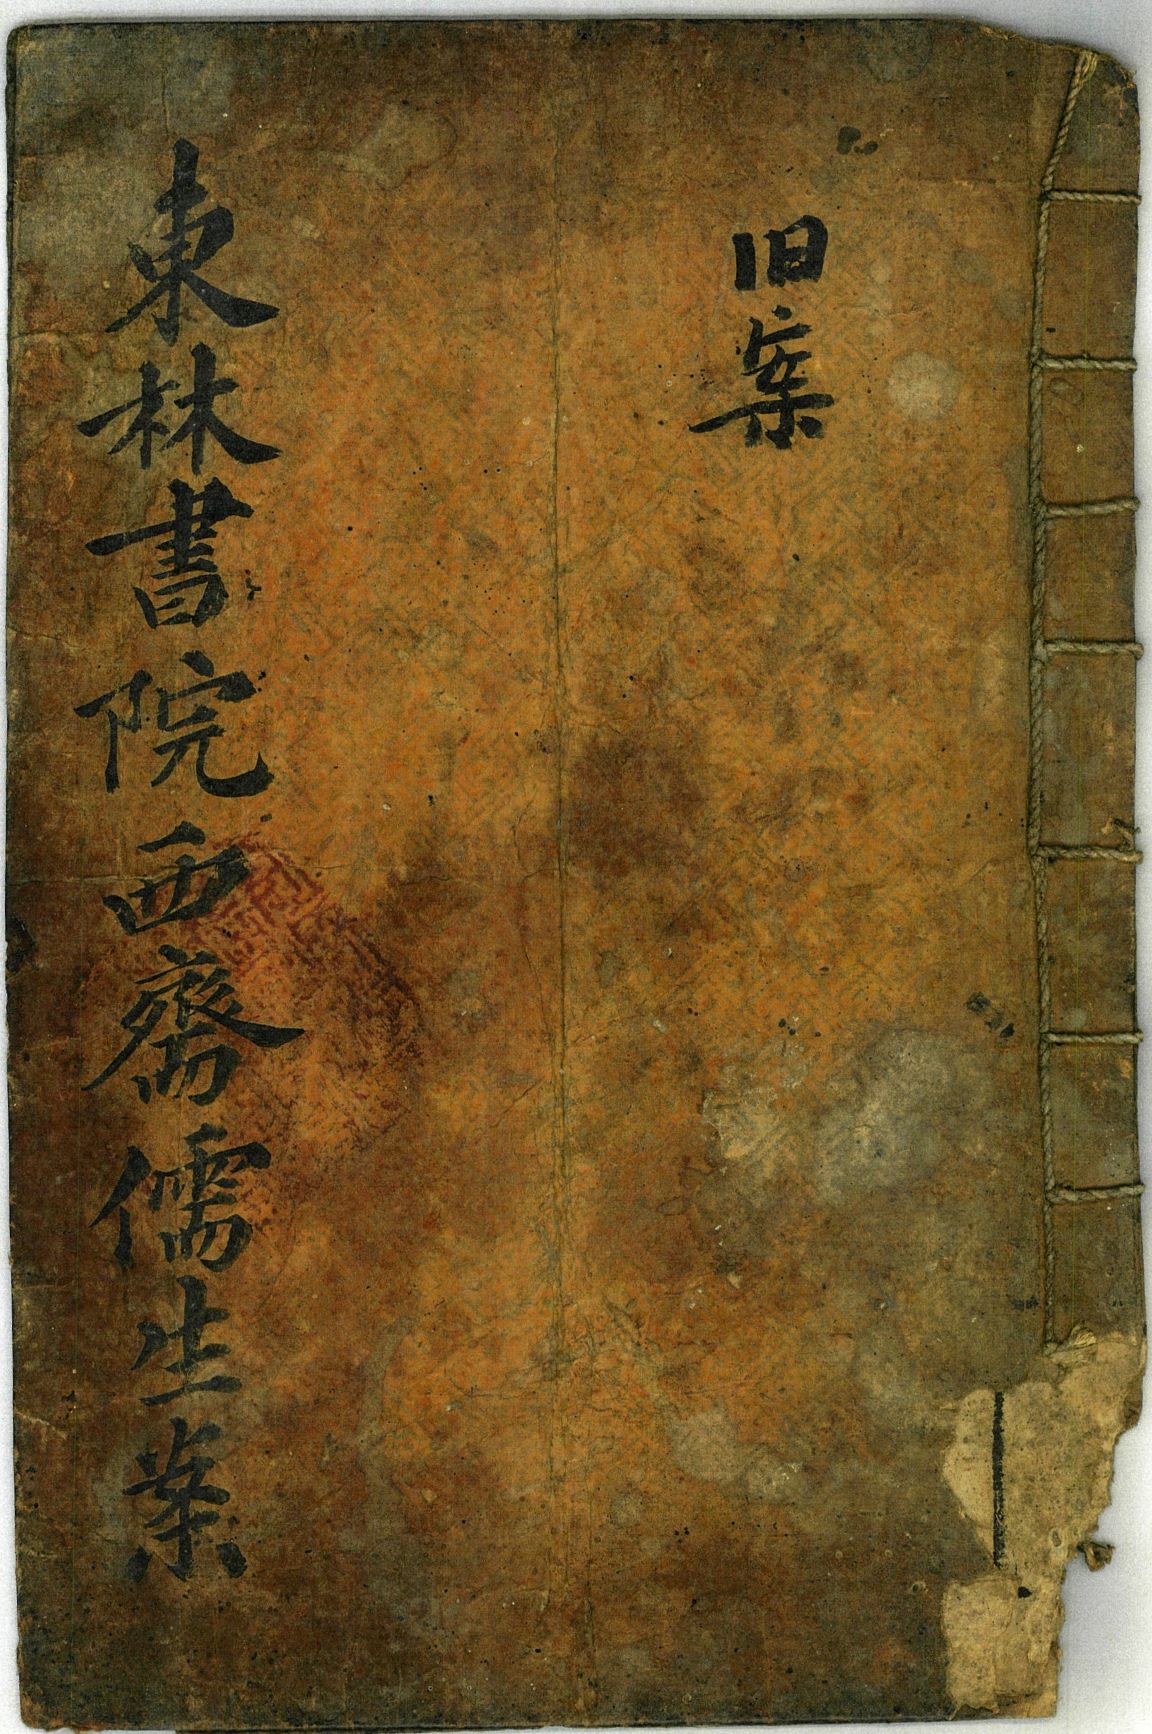 旧案
東林書院西齋儒生案